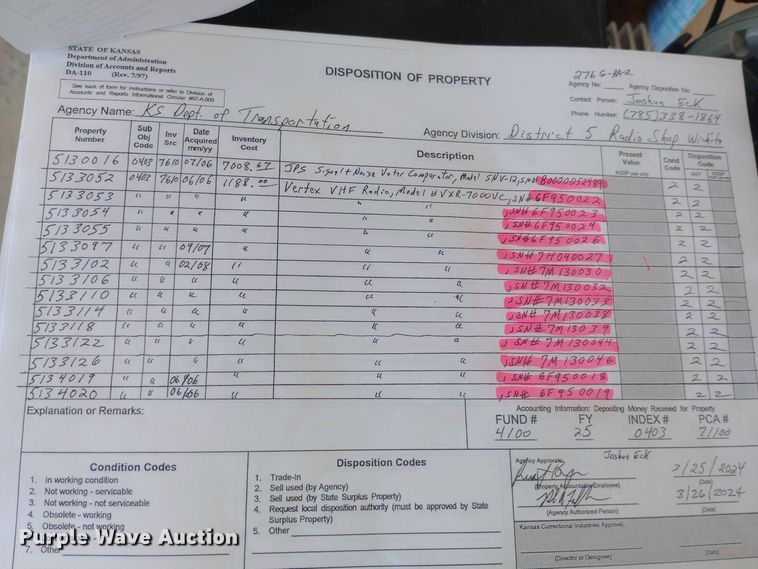 STATE OF KANSAS
Department of Administration
Division of Accounts and Reports
DA-110 (Rev. 7/97)
See back of form for instructions or refer to Division of
Accounts and Reports Informational Circular #97-A-006
DISPOSITION OF PROPERTY
276 G-PA-2
Agency No: Agency Disposition No:
Contact Person: Joshua Eck
Phone Number: (785)338-1864
Agency Name: KS Dept. of Transportation
Agency Division: District 5 Radio Shop Wichita
Property Number Sub Obj Code Inv Src Date Acquired mm/yy Inventory Cost Description Present Value KSSP use only Cond Code Disposition Code AGY KSSP
5130016 0403 7610 07/06 7008.67 JPS Signal + Noise Voter Comparator, Model SNV-12, SN# B0000052489 2 2
5133052 0403 7610 06/06 1188.00 Vertex VHF Radio, Model # VXR-7000VC, SN# 6F950022 2 2
5133053 " " " " " " , SN# 6F950023 2 2
5133054 " " " " " " , SN# 6F950024 2 2
5133055 " " " " " " , SN# 6F950026 2 2
5133097 " " 09/07 " " " , SN# 7H040027 2 2
5133102 " " 02/08 " " " , SN# 7M130030 2 2
5133106 " " " " " " , SN# 7M130032 2 2
5133110 " " " " " " , SN# 7M130033 2 2
5133114 " " " " " " , SN# 7M130038 2 2
5133118 " " " " " " , SN# 7M13039 2 2
5133122 " " " " " " , SN# 7M130044 2 2
5133126 " " " " " " , SN# 7M130046 2 2
5134019 " " 06/06 " " " , SN# 6F950018 2 2
5134020 " " 06/06 " " " , SN# 6F950019 2 2
Explanation or Remarks:
Accounting Information: Depositing Money Received for Property
FUND # FY INDEX # PCA #
4100 25 0403 71100
Condition Codes
1. In working condition
2. Not working - servicable
3. Not working - not serviceable
4. Obsolete - working
5. Obsolete - not working
7. Other
Disposition Codes
1. Trade-In
2. Sell used (by Agency)
3. Sell used (by State Surplus Property)
4. Request local disposition authority (must be approved by State
Surplus Property)
5. Other
Agency Approval: Joshua Eck
(Property Accountable Employee) 3/25/2024 (Date)
(Agency Authorized Person) 3/26/2024 (Date)
Kansas Correctional Industries Approval:
(Director or Designee) (Date)
Purple Wave Auction